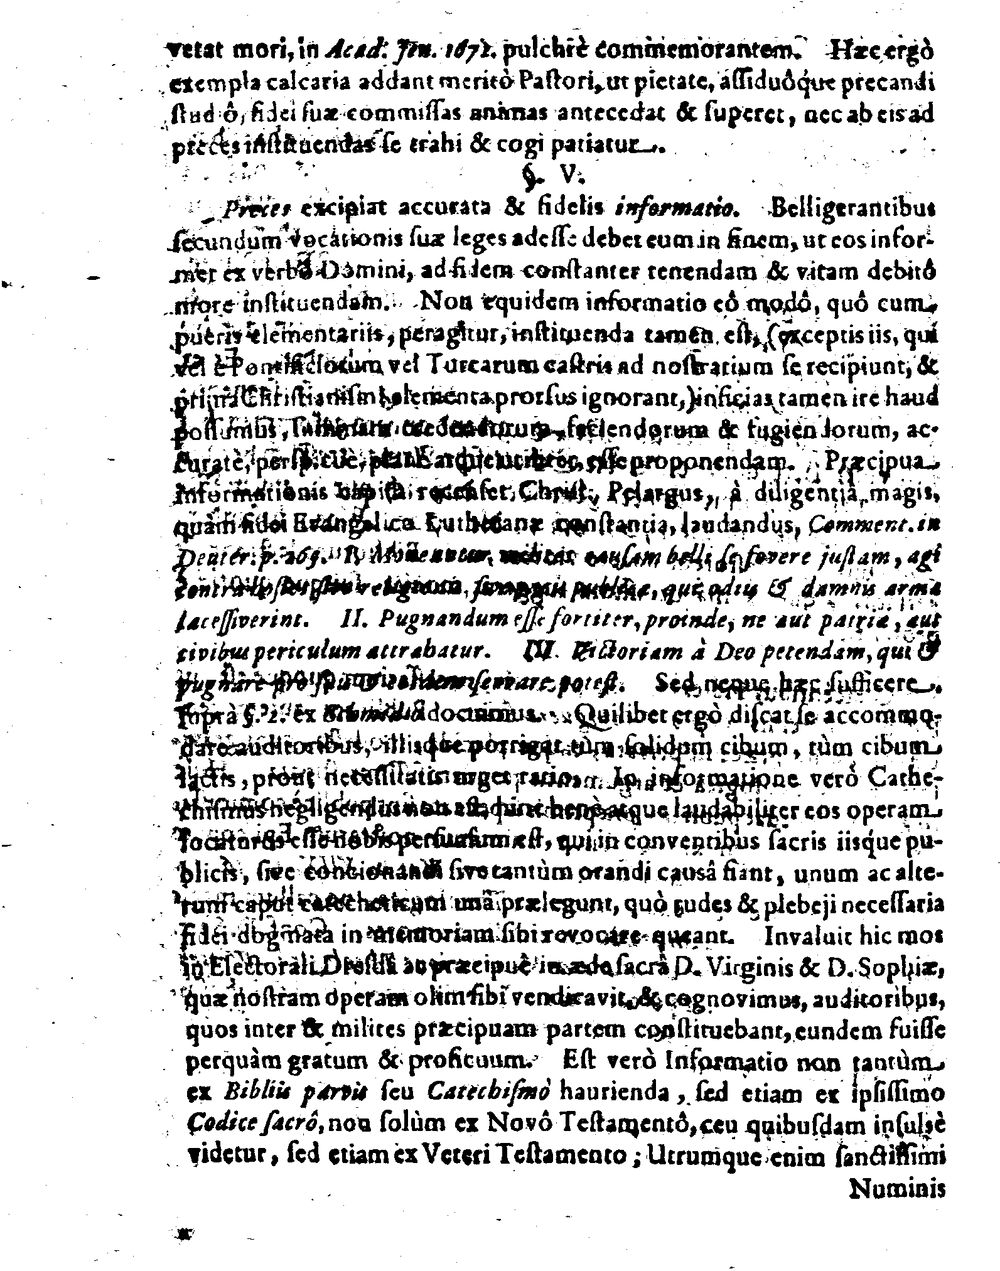 vetat mori, in Acad. Jen. 1672. pulchrè commemorantem. Hæc ergò
exempla calcaria addant meritò Paſtori, ut pietate, aſſiduôq́ue precandi
ſtudiô, fidei ſuæ commiſſas animas antecedat & ſuperet, nec ab eis ad
preces inſtituendas ſe trahi & cogi patiatur.
§. V.
Preces excipiat accurata & fidelis informatio. Belligerantibus
ſecundum vocationis ſuæ leges adeſſe debet eum in finem, ut eos infor-
met ex verbo Domini, ad fidem conſtanter tenendam & vitam debitô
more inſtituendam. Non equidem informatio eô modô, quô cum
pueris elementariis, peragitur, inſtituenda tamen eſt, (exceptis iis, qui
vel è Pontificiorum vel Turcarum caſtris ad noſtratium ſe recipiunt, &
prima Chriſtianiſmi elementa prorſus ignorant,) inficias tamen ire haud
poſſumus, credendorum, faciendorum & fugiendorum, ac-
curatè, perſpicuè, eſſe proponendam. Præcipua
informationis capita recenſet Chriſt. Pelargus, à diligentiâ magis,
quàm fidei Evangelico Lutheranæ conſtantia, laudandus, Comment. in
Deuter. p. 269. I. militem cauſam belli ſe fovere juſtam, agi
contra religionis, publicæ, qui odiis & damnis arma
laceſſiverint. II. Pugnandum eſſe fortiter, proinde, ne aut patria, aut
civibus periculum attrahatur. III. Victoriam à Deo petendam, qui &
pugnare pro ſuis & eosdem ſervare poteſt. Sed neque hæc ſufficere
ſuprà §. 2. ex docuimus. Quilibet ergò diſcat ſe accommo-
dare auditoribus, illisque porrigat tùm ſolidum cibum, tùm cibum
lactis, prout neceſſitatis urget ratio. In informatione verò Cathe-
chiſmus negligendus non eſt, hinc benè atque laudabiliter eos operam
locaturos eſſe nobis perſuaſum eſt, qui in conventibus ſacris iisque pu-
blicis, ſive concionandi ſive tantùm orandi causâ fiant, unum ac alte-
rum caput catecheticum unâ prælegunt, quò rudes & plebeji neceſſaria
fidei dogmata in memoriam ſibi revocare queant. Invaluit hic mos
in Electorali Dresda ac præcipuè in æde ſacrâ D. Virginis & D. Sophiæ,
quæ noſtram operam olim ſibi vendicavit, & cognovimus, auditoribus,
quos inter & milites præcipuam partem conſtituebant, eundem fuiſſe
perquàm gratum & proficuum. Eſt verò Informatio non tantùm
ex Bibliis parvis ſeu Catechiſmò haurienda, ſed etiam ex ipſiſſimo
Codice ſacrô, non ſolùm ex Novô Teſtamentô, ceu quibuſdam inſulsè
videtur, ſed etiam ex Veteri Teſtamento; Utrumque enim ſanctiſſimi
Numinis